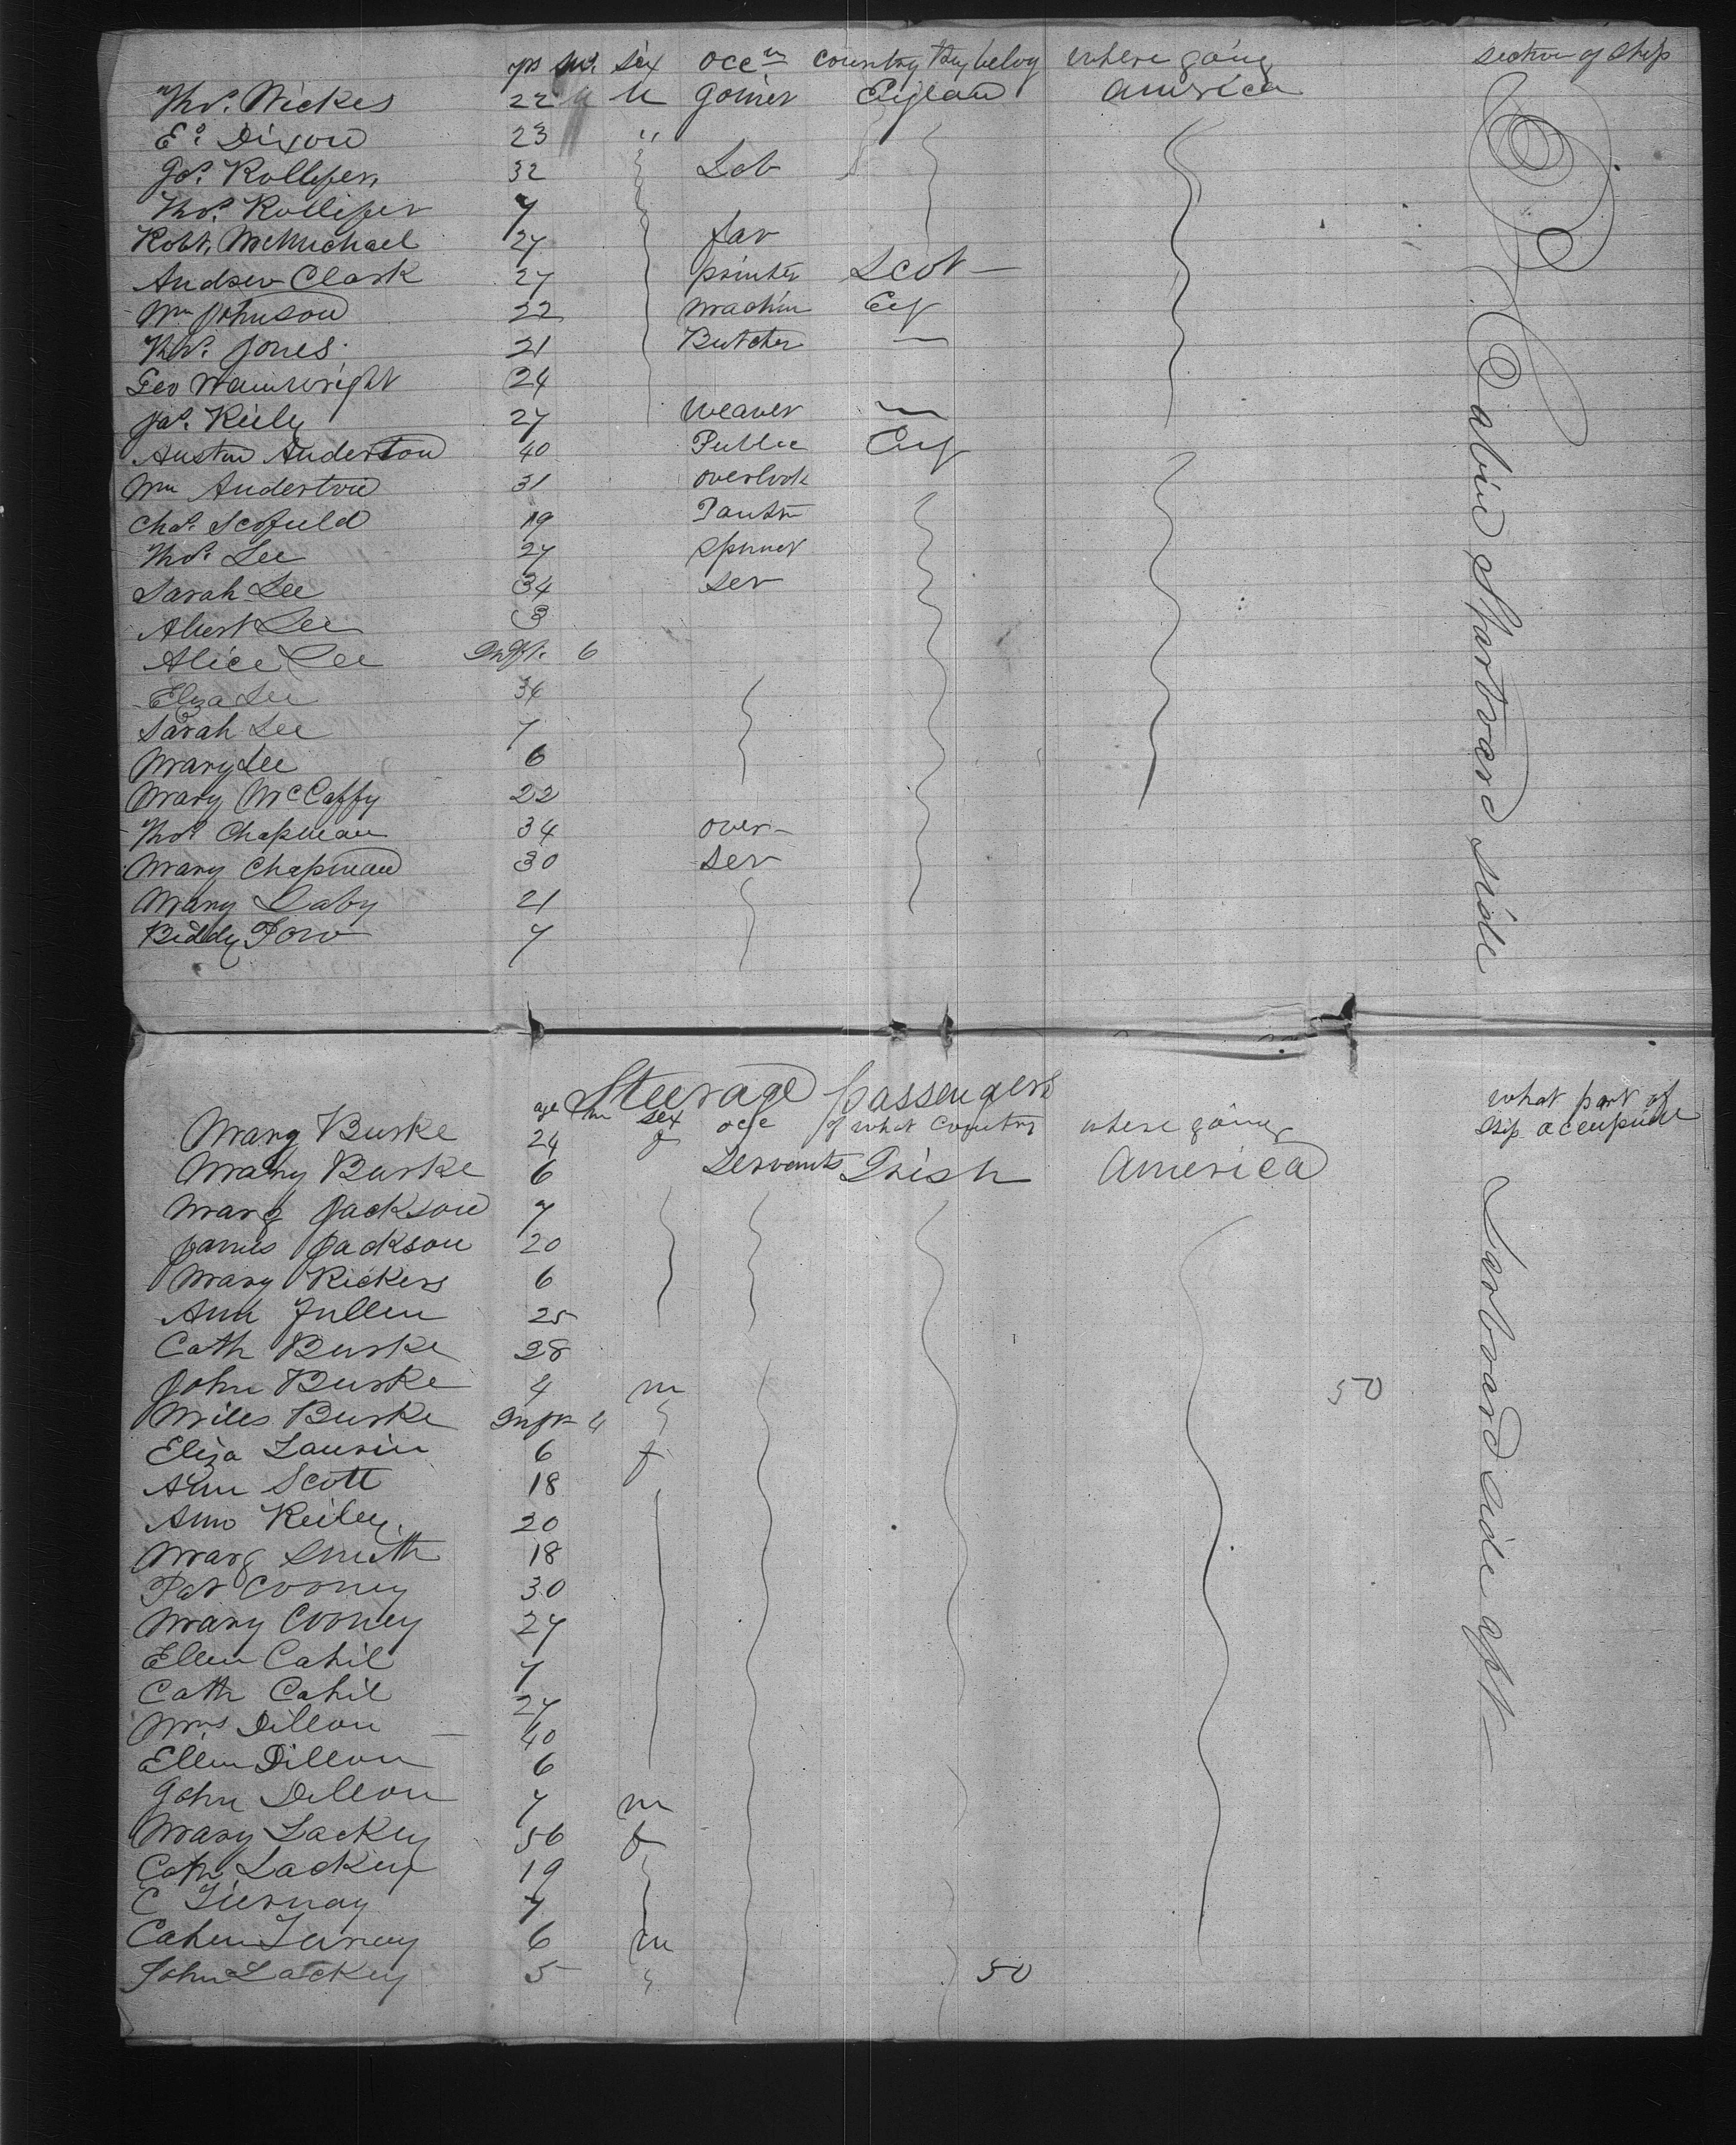 yrs sex occn country they belong where going section of ship
Thos. Wickes 22 M Joiner England America
Ed. Dixon 23 "
Jas. Rollifer 32 Lab
Thos. Rollifer 7
Robt. McMichael 27 far
Andrew Clark 27 printer Scot —
Wm Johnson 22 machin Eng
Thos. Jones 21 Butcher —
Geo Wainwright 24
Jas. Kiely 27 weaver —
Austin Anderton 40 Public Eng
Wm Anderton 31 overlook
Chas. Scofield 19
Thos. Lee 27 spiner
Sarah Lee 34 ser
Albert Lee 3
Alice Lee Inft. 6
Eliza Lee 34
Sarah Lee 7
Mary Lee 6
Mary McCaffy 22
Thos Chapman 34 over-
Mary Chapman 30 ser
Mary Daby 21
Biddy 7
Cabin Starboard side
Steerage passengers
age m sex occ of what Country where going what part of
ship occupied
Marg Burke 24 f
Mary Burke 6 Servants Irish America
Marg Jackson 7
James Jackson 20
Mary Rickers 6
Ann Fullen 25
Cath Burke 28
John Burke 4 m 50
Miles Burke Infn 4
Eliza Laurin 6 f
Ann Scott 18
Ann Keiley 20
Marg Smith 18
Pat Cooney 30
Mary Cooney 27
Ellen Cahil 7
Cath Cahil 27
Mrs Dillon — 40
Ellen Dillon 6
John Dillon 7 m
Mary Lackey 56 f
Cath Lackey 19
C Tiernay 7
6 m
John Lackey 5 50
Larboard side aft —